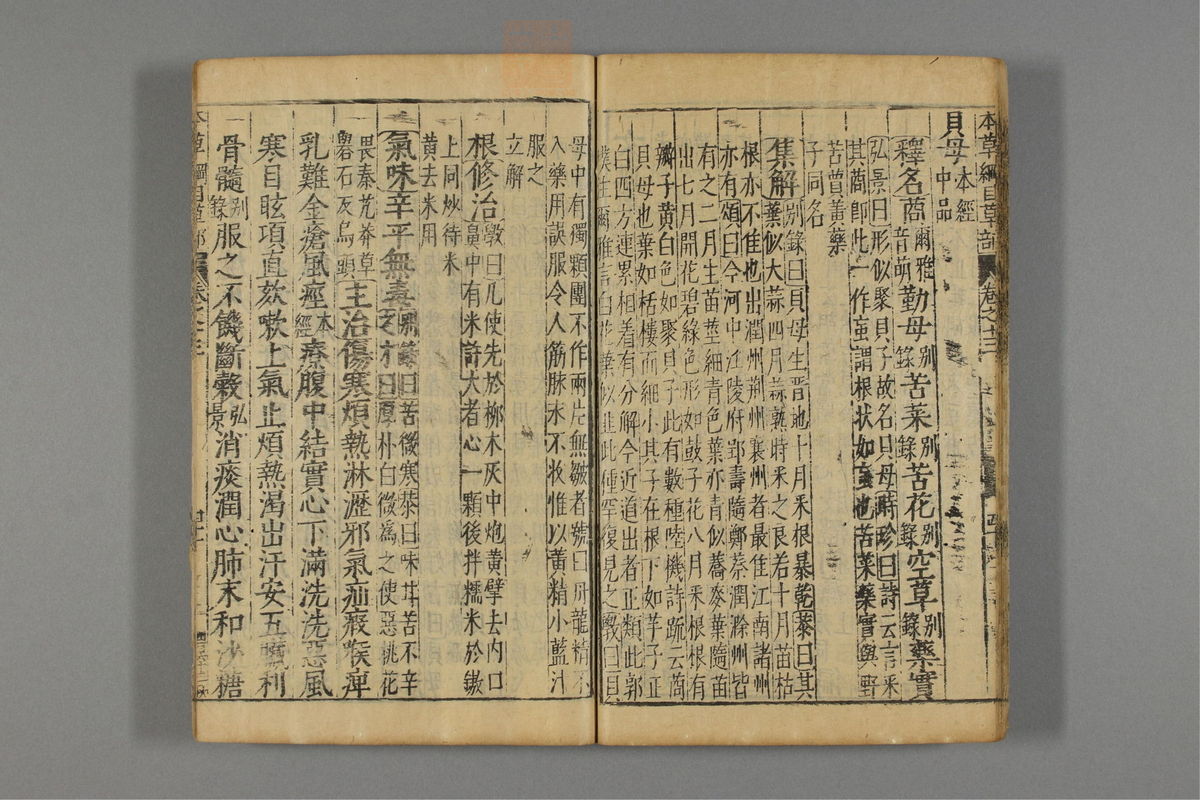 本草綱目草部 卷之十三
貝母 本經
中品
釋名 莔 爾雅
音萌 勤母 别
錄 苦菜 别
錄 苦花 别
錄 空草 别
錄 藥實
弘景曰形似聚貝子故名貝母時珍曰詩云言采
其莔卽此一作䖟謂根状如䖟也苦菜藥實與野
苦蕒黄藥
子同名
集解 别錄曰貝母生晋地十月采根暴乾恭曰其
葉似大蒜四月蒜熟時采之良若十月苗枯
根亦不佳也出潤州荆州襄州者最佳江南諸州
亦有頌曰今河中江陵府郢壽隨鄭蔡潤滁州皆
有之二月生苗莖細青色葉亦青似蕎麥葉隨苗
出七月開花碧綠色形如鼓子花八月采根根有
瓣子黄白色如聚貝子此有數種陸機詩疏云莔
貝母也葉如栝樓而細小其子在根下如芋子正
白四方連累相着有分解今近道出者正類此郭
璞注爾雅言白花葉似韭此種罕復見之斆曰貝
母中有獨顆團不作兩片無皺者號曰丹龍精不
入藥用誤服令人筋脉永不收惟以黄精小藍汁
服之
立解
根修治 斆曰凡使先於柳木灰中炮黄擘去内口
鼻中有米許大者心一顆後拌糯米於鏾
上同炒待米
黄去米用
氣味辛平無毒 别錄曰苦微寒恭曰味甘苦不辛
之才曰厚朴白微爲之使惡桃花
畏秦艽莽草
礜石灰烏頭 主治傷寒煩熱淋瀝邪氣疝瘕喉痺
乳難金瘡風痙 本
經 療腹中結實心下滿洗洗惡風
寒目眩項直欬嗽上氣止煩熱渴出汗安五臟利
骨髓 别
錄 服之不饑斷穀 弘
景 消痰潤心肺末和沙糖
本草綱目草部 卷之十三